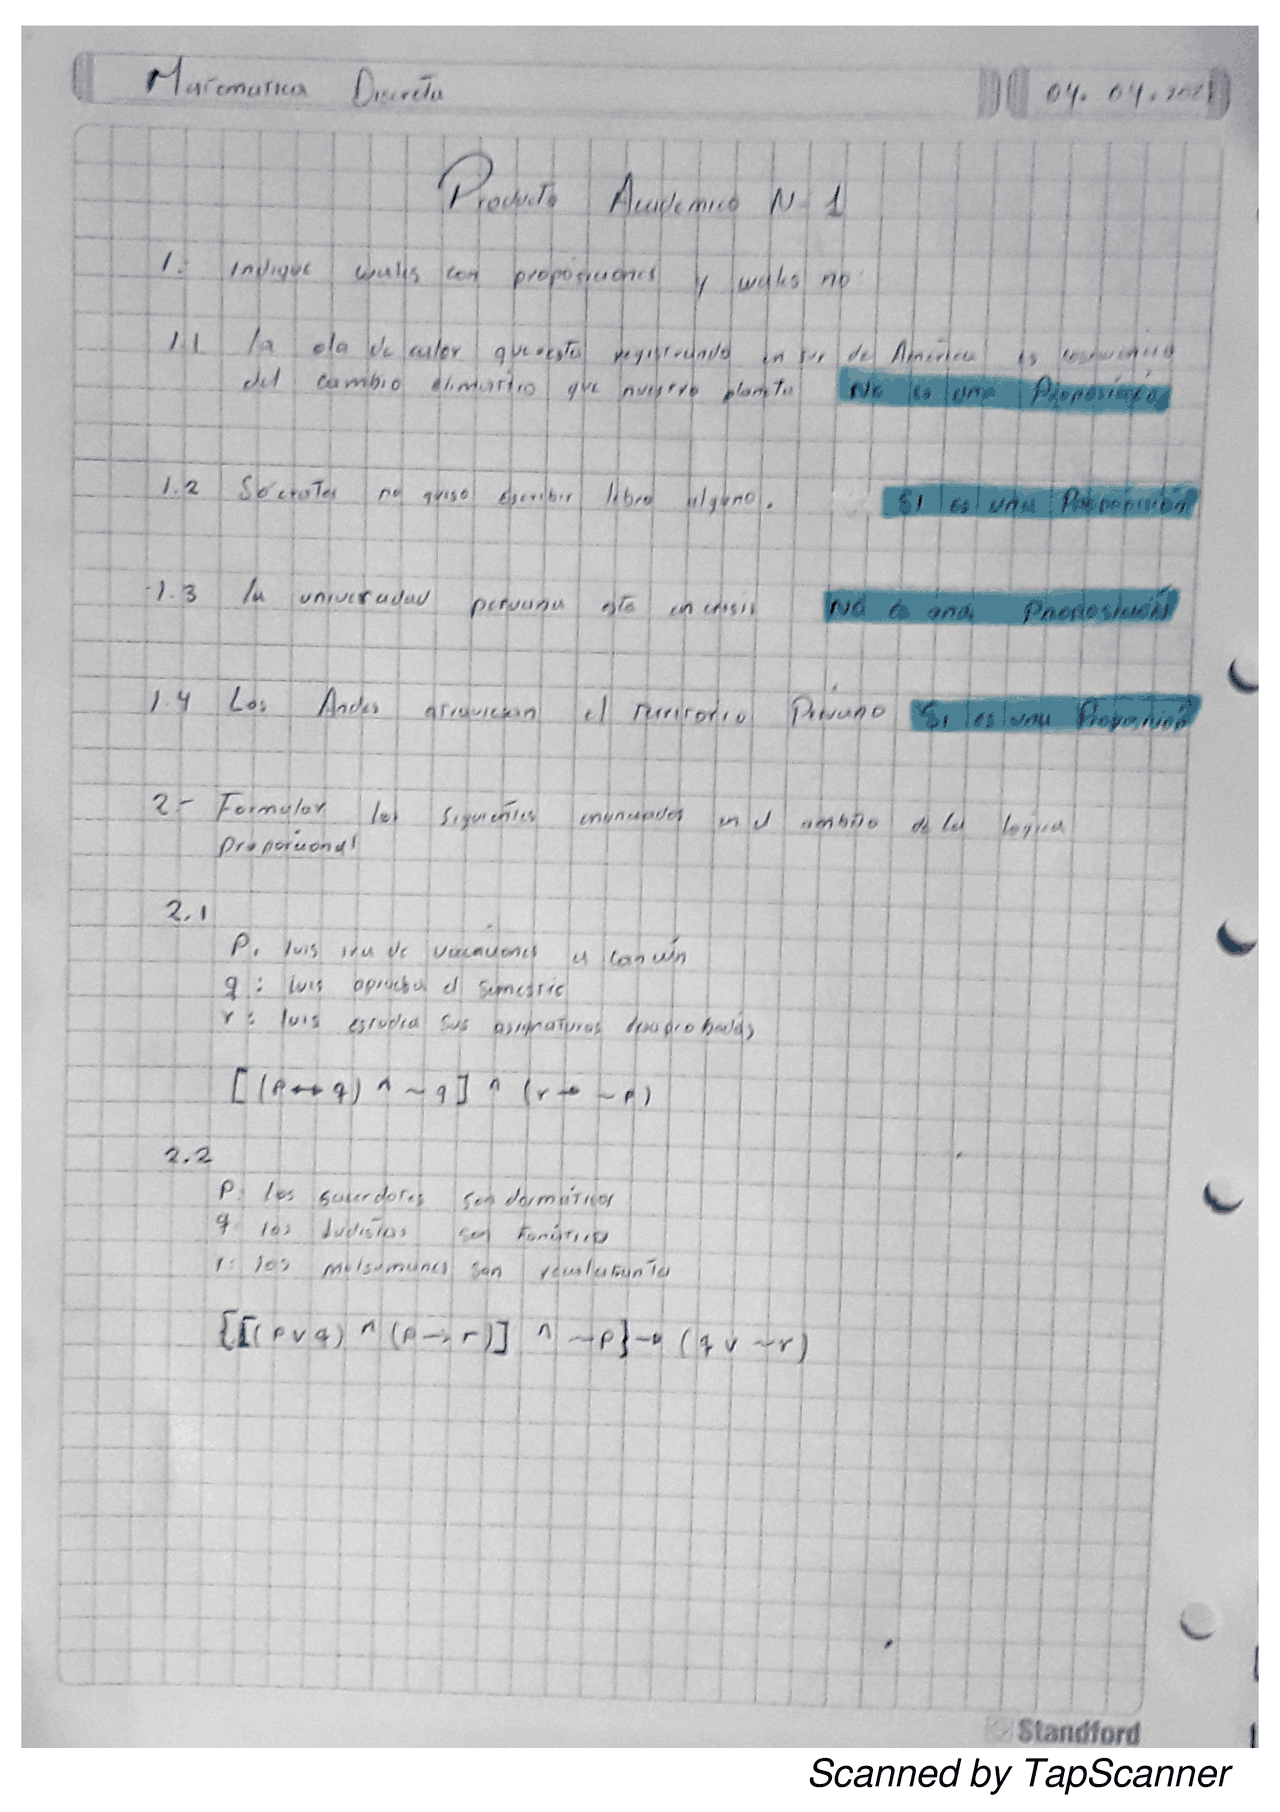 Matematica Discreta 04.04.2021
Producto Academico N- 1
1. Indique cuales son proposiciones y cuales no:
1.1 la ola de calor que esta registrando en sur de América es consecuencia
del cambio climatico que nuestro planeta No es una Proposición
1.2 Sócrates no quiso escribir libro alguno. SI es una Proposición
1.3 la universidad peruana esta en crisis No es una Proposición
1.4 Los Andes atraviesan el territorio Peruano Si es una Proposición
2- Formular los siguientes enunciados en el ambito de la logica
proposicional
2.1
P: luis ira de vacaciones a
q: luis aprueba el semestre
r: luis estudia sus asignaturas desaprobadas
[(p↔q) ^ ~q] ^ (r→ ~p)
2.2
P: los sacerdotes son
q: los son
r: los son
{[(p∨q) ^ (p→r)] ^ ~p}→ (q ∨ ~r)
Standford
Scanned by TapScanner